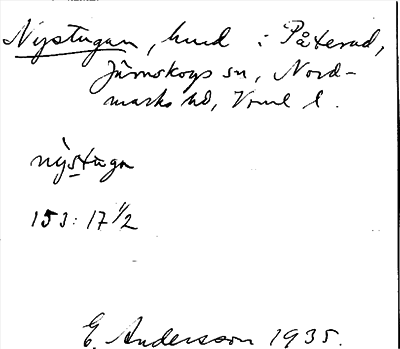 Nystugan, hmd i Påterud,
Järnskogs sn, Nord-
marks hd, Vrml l.
nỳstùga
153: 17 1/2
E. Andersson 1935.